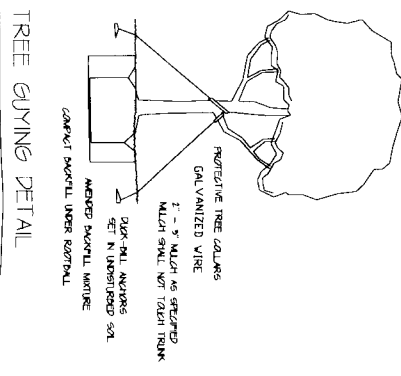 PROTECTIVE TREE COLLARS
GALVANIZED WIRE
2" - 3" MULCH AS SPECIFIED
MULCH SHALL NOT TOUCH TRUNK
DUCK-BILL ANCHORS
SET IN UNDISTURBED SOIL
AMENDED BACKFILL MIXTURE
COMPACT BACKFILL UNDER ROOTBALL
TREE GUYING DETAIL